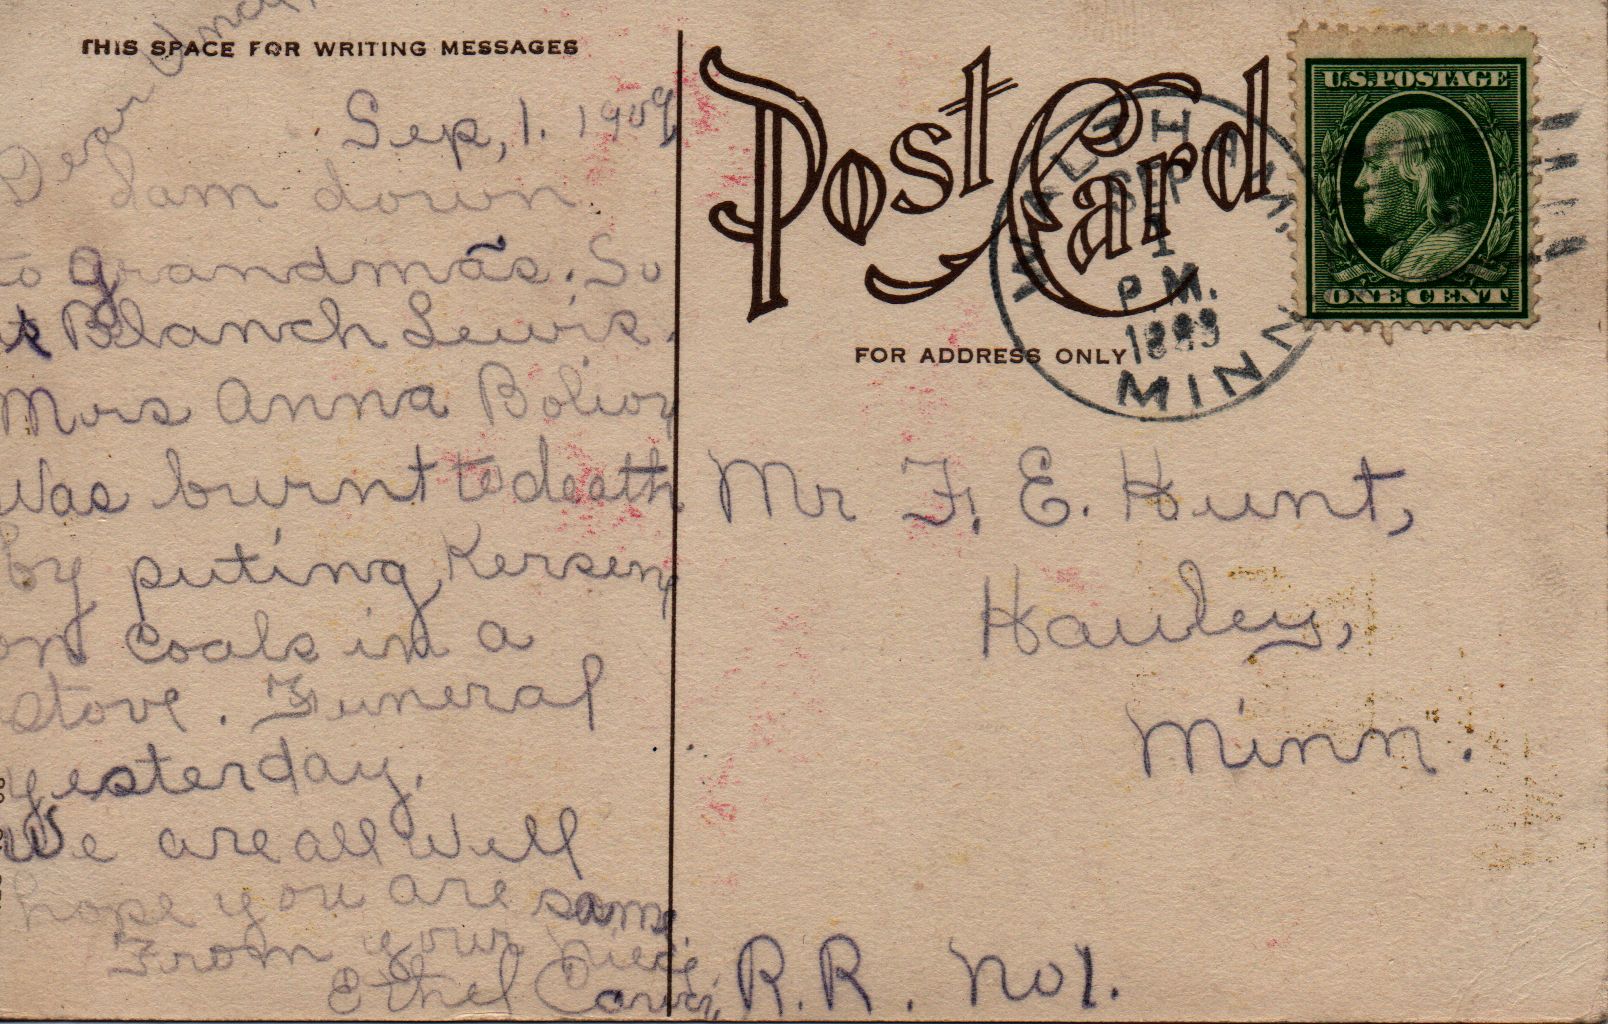 THIS SPACE FOR WRITING MESSAGES
Sep, 1. 1909
Dear Uncle
I am down
to grandmas. So
is Blanch Lewis.
Mrs Anna
Was burnt to death
by puting Kersen
on coals in a
stove. Funeral
yesterday.
We are all well
hope you are same
From your niece
Ethel
Post Card
FOR ADDRESS ONLY
WALTHAM,
SEP
1
P.M.
MINN
U.S. POSTAGE
ONE CENT
Mr F. E. Hunt,
Hawley,
Minn.
R.R. No 1.